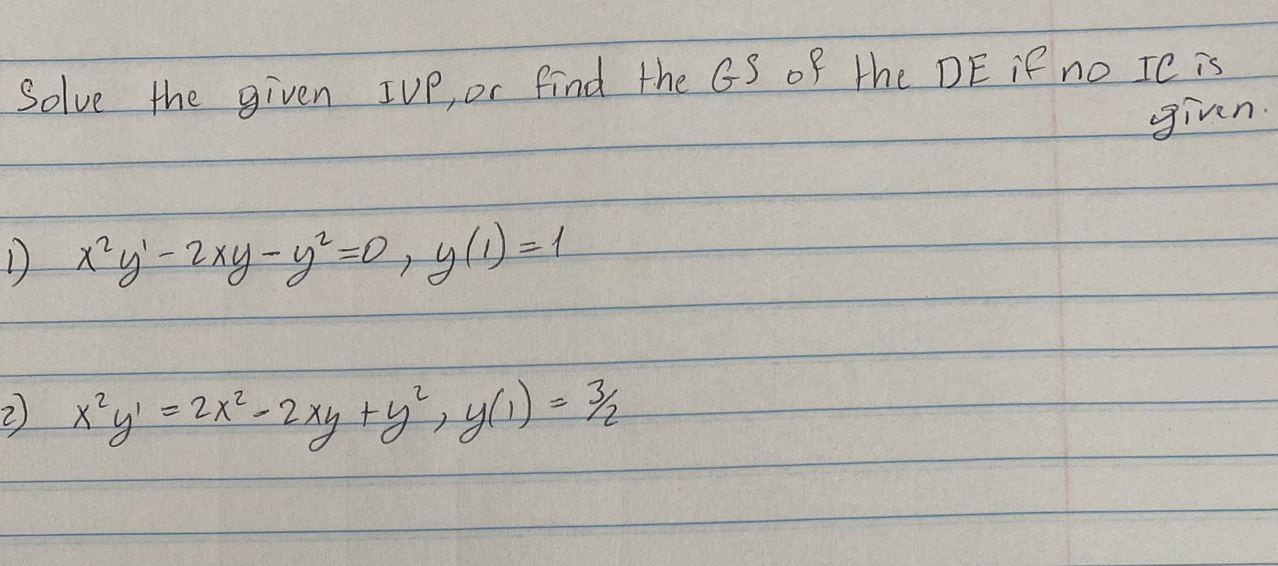 Solve the given IVP, or find the GS of the DE if no IC is
given.
1) x²y' - 2xy - y² = 0, y(1) = 1
2) x²y' = 2x² - 2xy + y², y(1) = 3/2